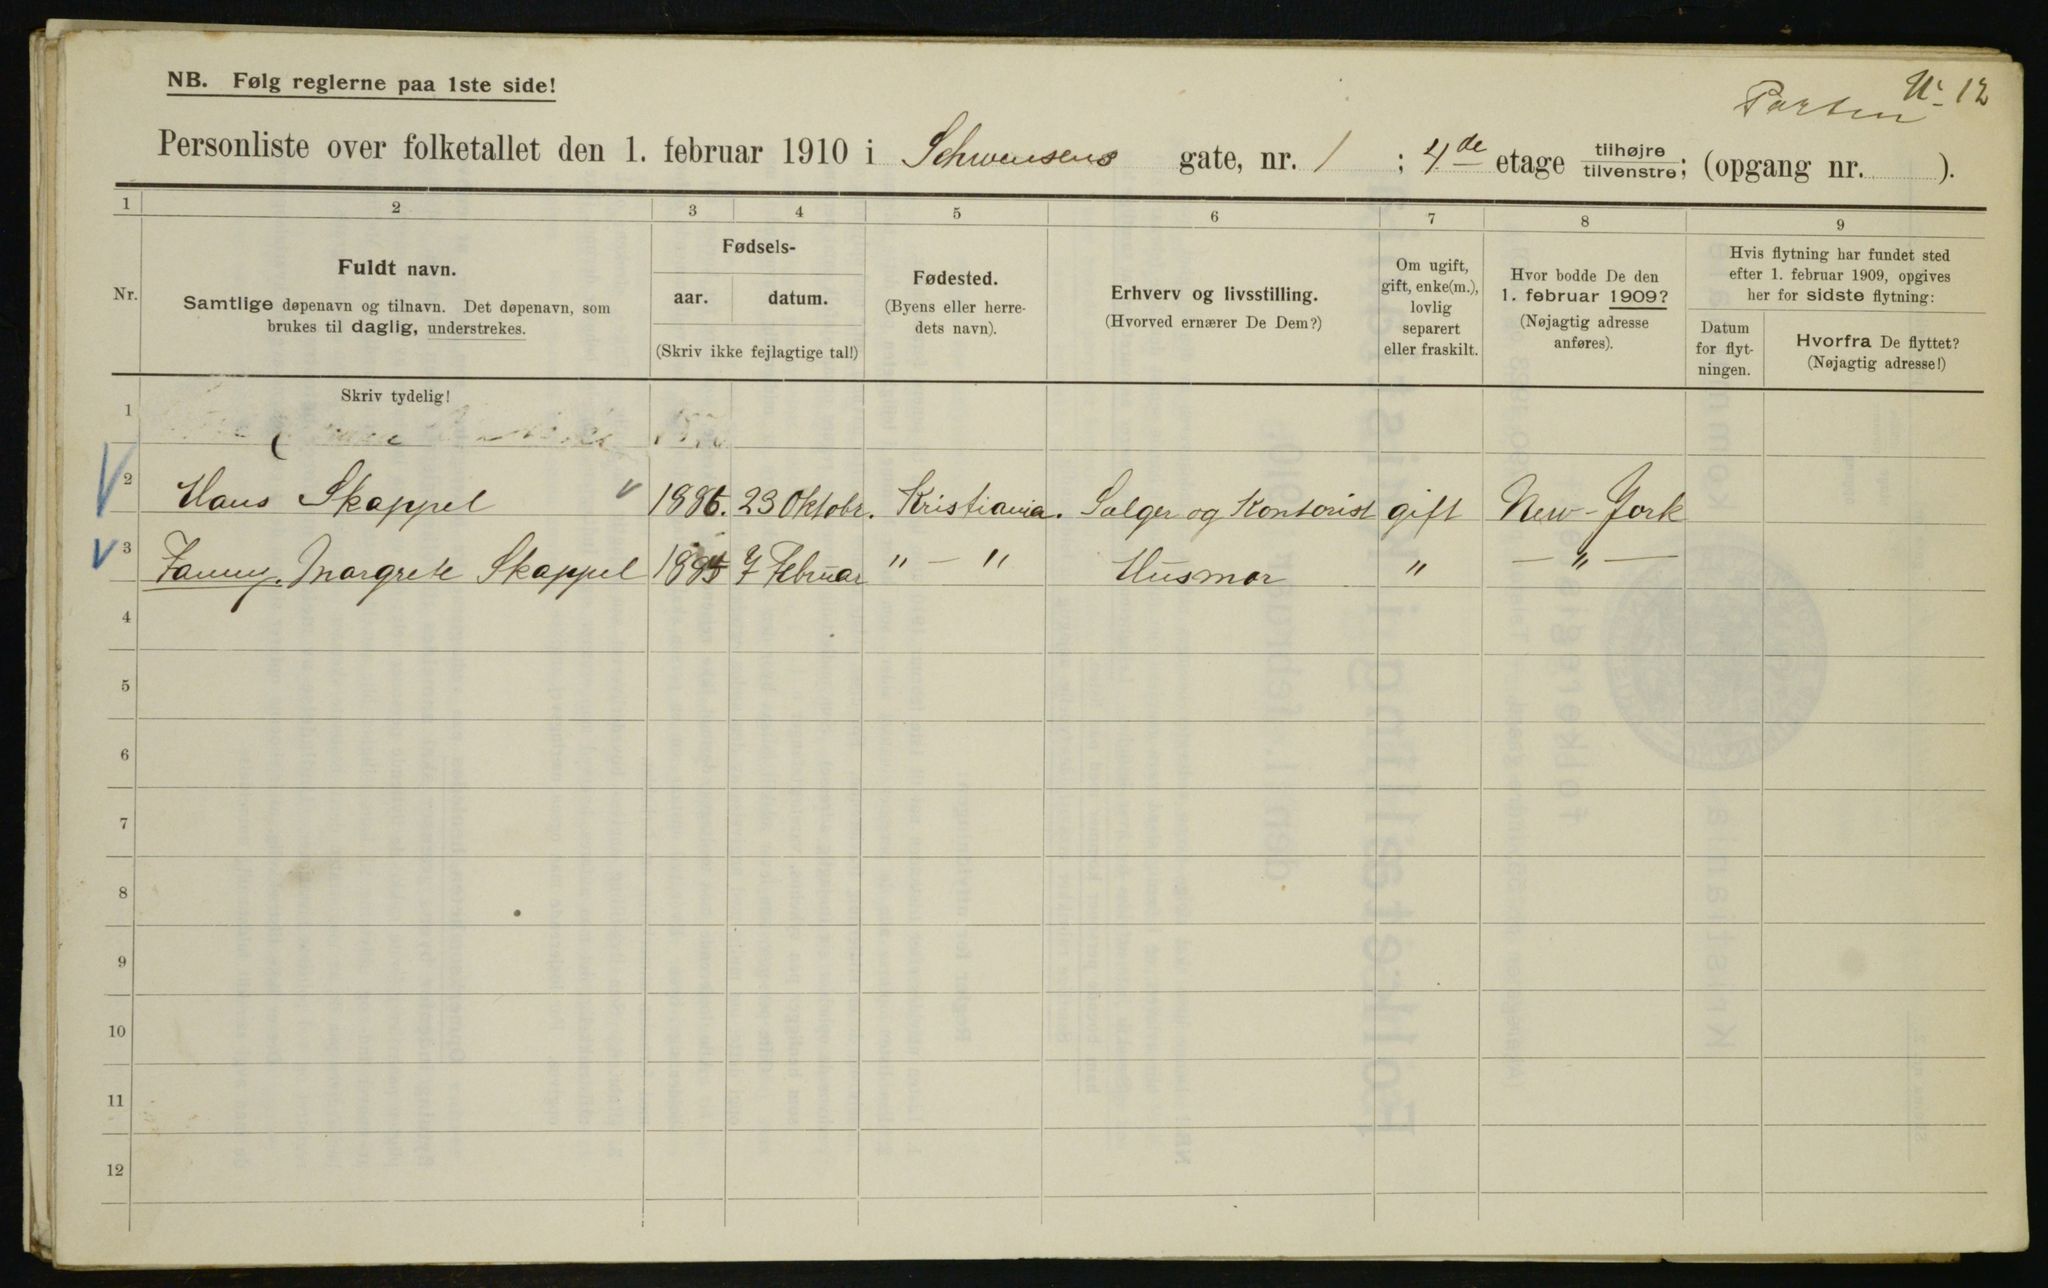 NB. Følg reglerne paa 1ste side!
Nr. 12
Personliste over folketallet den 1. februar 1910 i Schwensens gate, nr. 1 ; 4de etage tilhøjre tilvenstre; (opgang nr. ).
1 2 3 4 5 6 7 8 9
Nr.
Fuldt navn.
Samtlige døpenavn og tilnavn. Det døpenavn, som
brukes til daglig, understrekes.
Fødsels-
aar. datum.
(Skriv ikke fejlagtige tal!)
Fødested.
(Byens eller herre-
dets navn).
Erhverv og livsstilling.
(Hvorved ernærer De Dem?)
Om ugift,
gift, enke(m.),
lovlig
separert
eller fraskilt.
Hvor bodde De den
1. februar 1909?
(Nøjagtig adresse
anføres).
Hvis flytning har fundet sted
efter 1. februar 1909, opgives
her for sidste flytning:
Datum
for flyt-
ningen.
Hvorfra De flyttet?
(Nøjagtig adresse!)
Skriv tydelig!
1
2 Hans Skappel 1886. 23 Oktobr. Kristiania. Sælger og Kontorist gift New-York
3 Fanny. Margrete Skappel 1885 7 Februar " — " Husmor " — " —
4
5
6
7
8
9
10
11
12